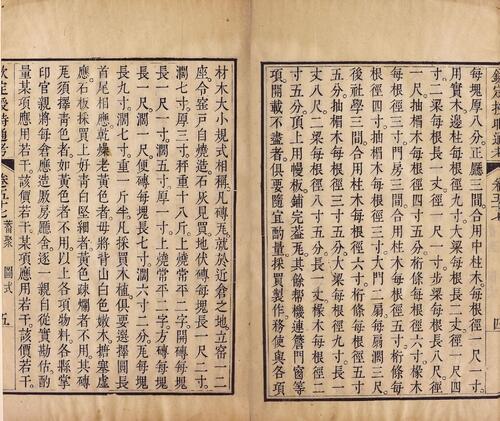 每塊厚八分。正廳三間。合用中柱木。每根徑一尺一寸。
用實木邊柱每根徑九寸。大梁每根長二丈。徑一尺四
寸。二梁每根長一丈。徑一尺一寸。步梁每根長八尺。徑
一尺。抽楣木每根徑五寸。桁條每根徑六寸。椽木
每根徑三寸。門房三間。合用柱木每根徑五寸。桁條每
根徑四寸。抽楣木每根徑三寸。大門二扇。每扇濶三尺。
後社學三間。合用柱木每根徑六寸。桁條木每根徑
五寸。抽楣木每根徑三寸五分。大梁每根徑九寸。長一
丈八尺。二梁每根徑八寸五分。長一丈。椽木每根徑二
寸五分。頂上用幔板鋪完葢瓦。其餘幇機連簷門窗等
項開載不盡者。俱要隨宜酌量採買製作。務使與各項
材木大小規式相稱。凡磚瓦就於近倉之地。立窑一二
座。令窑戶自燒造。石灰見買。地伏磚每塊長一尺二寸。
濶七寸。厚三寸。秤重十八斤。上燒常平二字。開磚每塊
長一尺一寸。濶五寸。厚一寸。上燒常平二字。方磚每塊
長一尺。濶一尺。便磚每塊長七寸。濶六寸二分。瓦每塊
長九寸。濶七寸。重一斤半。凡採買木植俱要選擇圓長
首尾相應乾燥老黃色者。毋將背山白色嫩木搪塞虛
應。石板採買上好青白堅細者。黃色疎爛者不用。其磚
瓦須擇青色者。如黃色者不用。以上各項物料。各縣掌
印官親將每倉應造厫房廳舍。逐一親自從實勘估。酌
量某項應用若干。該價若干。某項應用若干。該價若干。
欽定授時通考 卷五十七 蓄聚 圖式 五